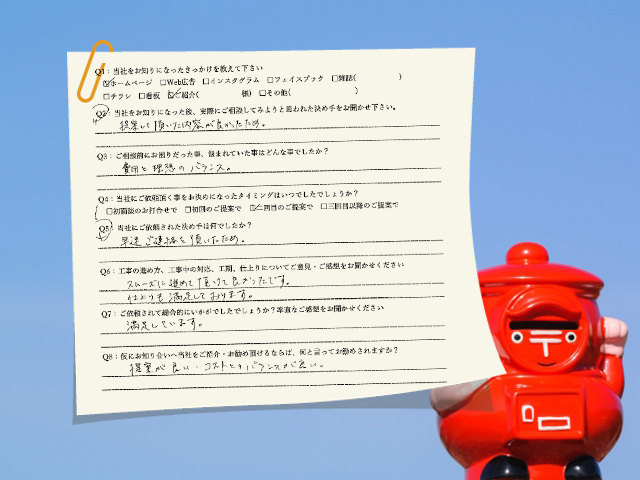 Q1：当社をお知りになったきっかけを教えて下さい
☑ホームページ □Web広告 □インスタグラム □フェイスブック □雑誌( )
□チラシ □看板 ☑ご紹介( 様) □その他( )
Q2：当社をお知りになった後、実際にご相談してみようと思われた決め手をお聞かせ下さい。
提案して頂いた内容が良かったため。
Q3：ご相談前にお困りだった事、悩まれていた事はどんな事でしたか？
費用と理想のバランス。
Q4：当社にご依頼頂く事をお決めになったタイミングはいつでしたでしょうか？
□初面談のお打合せで □初回のご提案で ☑二回目のご提案で □三回目以降のご提案で
Q5：当社にご依頼された決め手は何でしたか？
早速ご連絡を頂いたため。
Q6：工事の進め方、工事中の対応、工期、仕上りについてご意見・ご感想をお聞かせください
スムーズに進めて頂けて良かったです。
仕上りも満足しております。
Q7：ご依頼されて総合的にいかがでしたでしょうか？率直なご感想をお聞かせください
満足しています。
Q8：仮にお知り合いへ当社をご紹介・お勧め頂けるならば、何と言ってお勧めされますか？
提案が良い・コストとのバランスが良い。